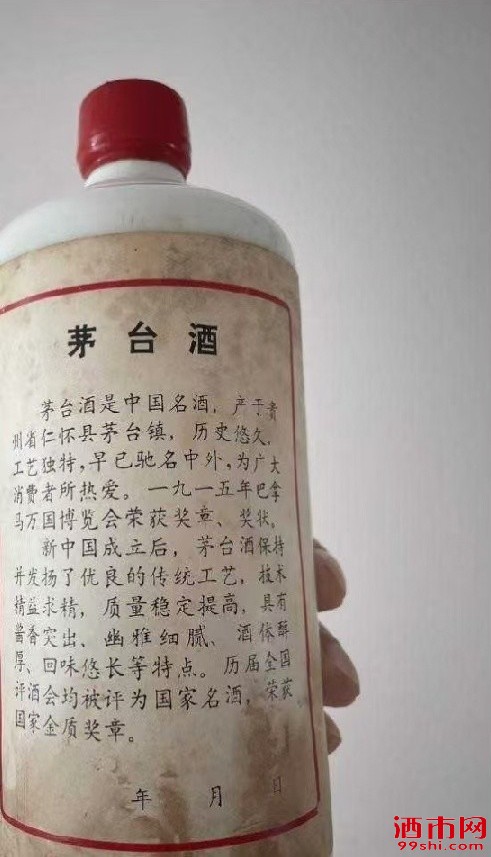 茅台酒
茅台酒是中国名酒，产于贵
州省仁怀县茅台镇，历史悠久，
工艺独特，早已驰名中外，为广大
消费者所热爱。一九一五年巴拿
马万国博览会荣获奖章、奖状。
新中国成立后，茅台酒保持
并发扬了优良的传统工艺，技术
精益求精，质量稳定提高，具有
酱香突出、幽雅细腻、酒体醇
厚、回味悠长等特点。历届全国
评酒会均被评为国家名酒，荣获
国家金质奖章。
年 月 日
酒市网
99shi.com